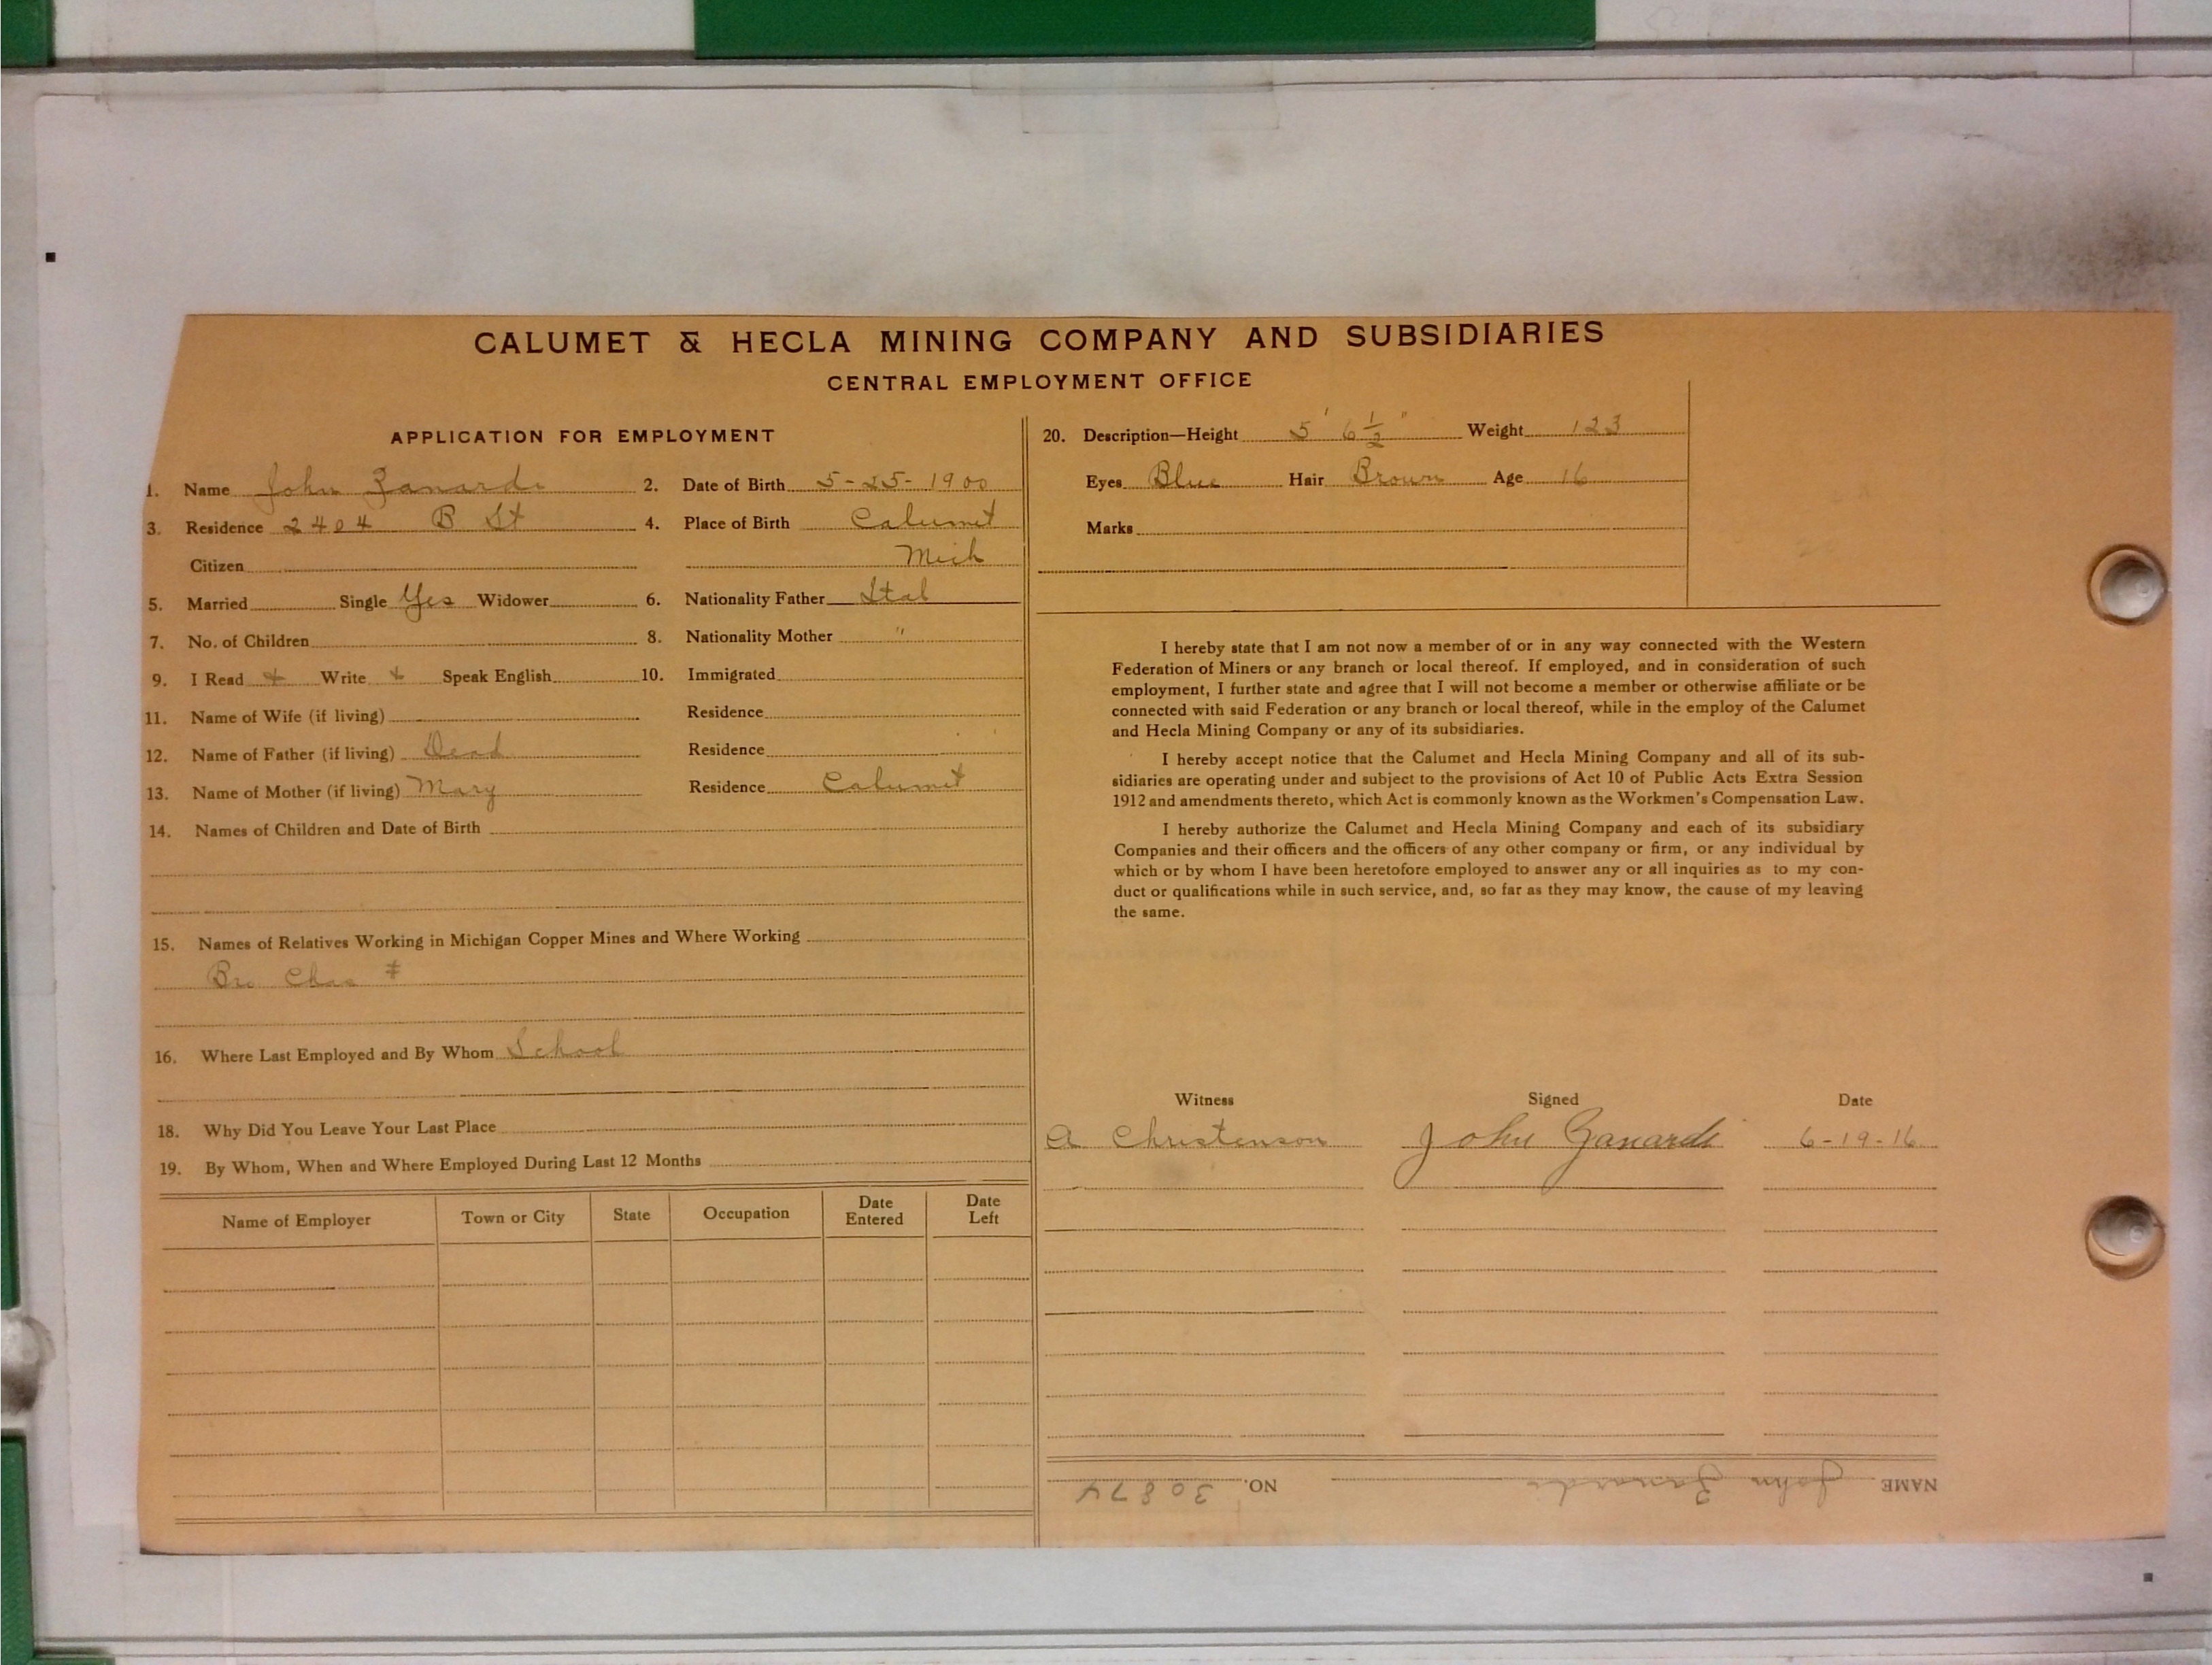 CALUMET & HECLA MINING COMPANY AND SUBSIDIARIES
CENTRAL EMPLOYMENT OFFICE
APPLICATION FOR EMPLOYMENT
1. Name John Zanardi 2. Date of Birth 5-25-1900
3. Residence 2404 B St 4. Place of Birth Calumet
Citizen Mich
5. Married Single Yes Widower 6. Nationality Father Ital
7. No. of Children 8. Nationality Mother "
9. I Read Write Speak English 10. Immigrated
11. Name of Wife (if living) Residence
12. Name of Father (if living) Dead Residence
13. Name of Mother (if living) Mary Residence Calumet
14. Names of Children and Date of Birth
15. Names of Relatives Working in Michigan Copper Mines and Where Working
Bro Chas #
16. Where Last Employed and By Whom School
18. Why Did You Leave Your Last Place
19. By Whom, When and Where Employed During Last 12 Months
Name of Employer Town or City State Occupation Date Entered Date Left
20. Description—Height 5' 6 1/2" Weight 123
Eyes Blue Hair Brown Age 16
Marks
I hereby state that I am not now a member of or in any way connected with the Western
Federation of Miners or any branch or local thereof. If employed, and in consideration of such
employment, I further state and agree that I will not become a member or otherwise affiliate or be
connected with said Federation or any branch or local thereof, while in the employ of the Calumet
and Hecla Mining Company or any of its subsidiaries.
I hereby accept notice that the Calumet and Hecla Mining Company and all of its sub-
sidiaries are operating under and subject to the provisions of Act 10 of Public Acts Extra Session
1912 and amendments thereto, which Act is commonly known as the Workmen's Compensation Law.
I hereby authorize the Calumet and Hecla Mining Company and each of its subsidiary
Companies and their officers and the officers of any other company or firm, or any individual by
which or by whom I have been heretofore employed to answer any or all inquiries as to my con-
duct or qualifications while in such service, and, so far as they may know, the cause of my leaving
the same.
Witness Signed Date
A Christenson John Zanardi 6-19-16
NAME John Zanardi NO. 30874